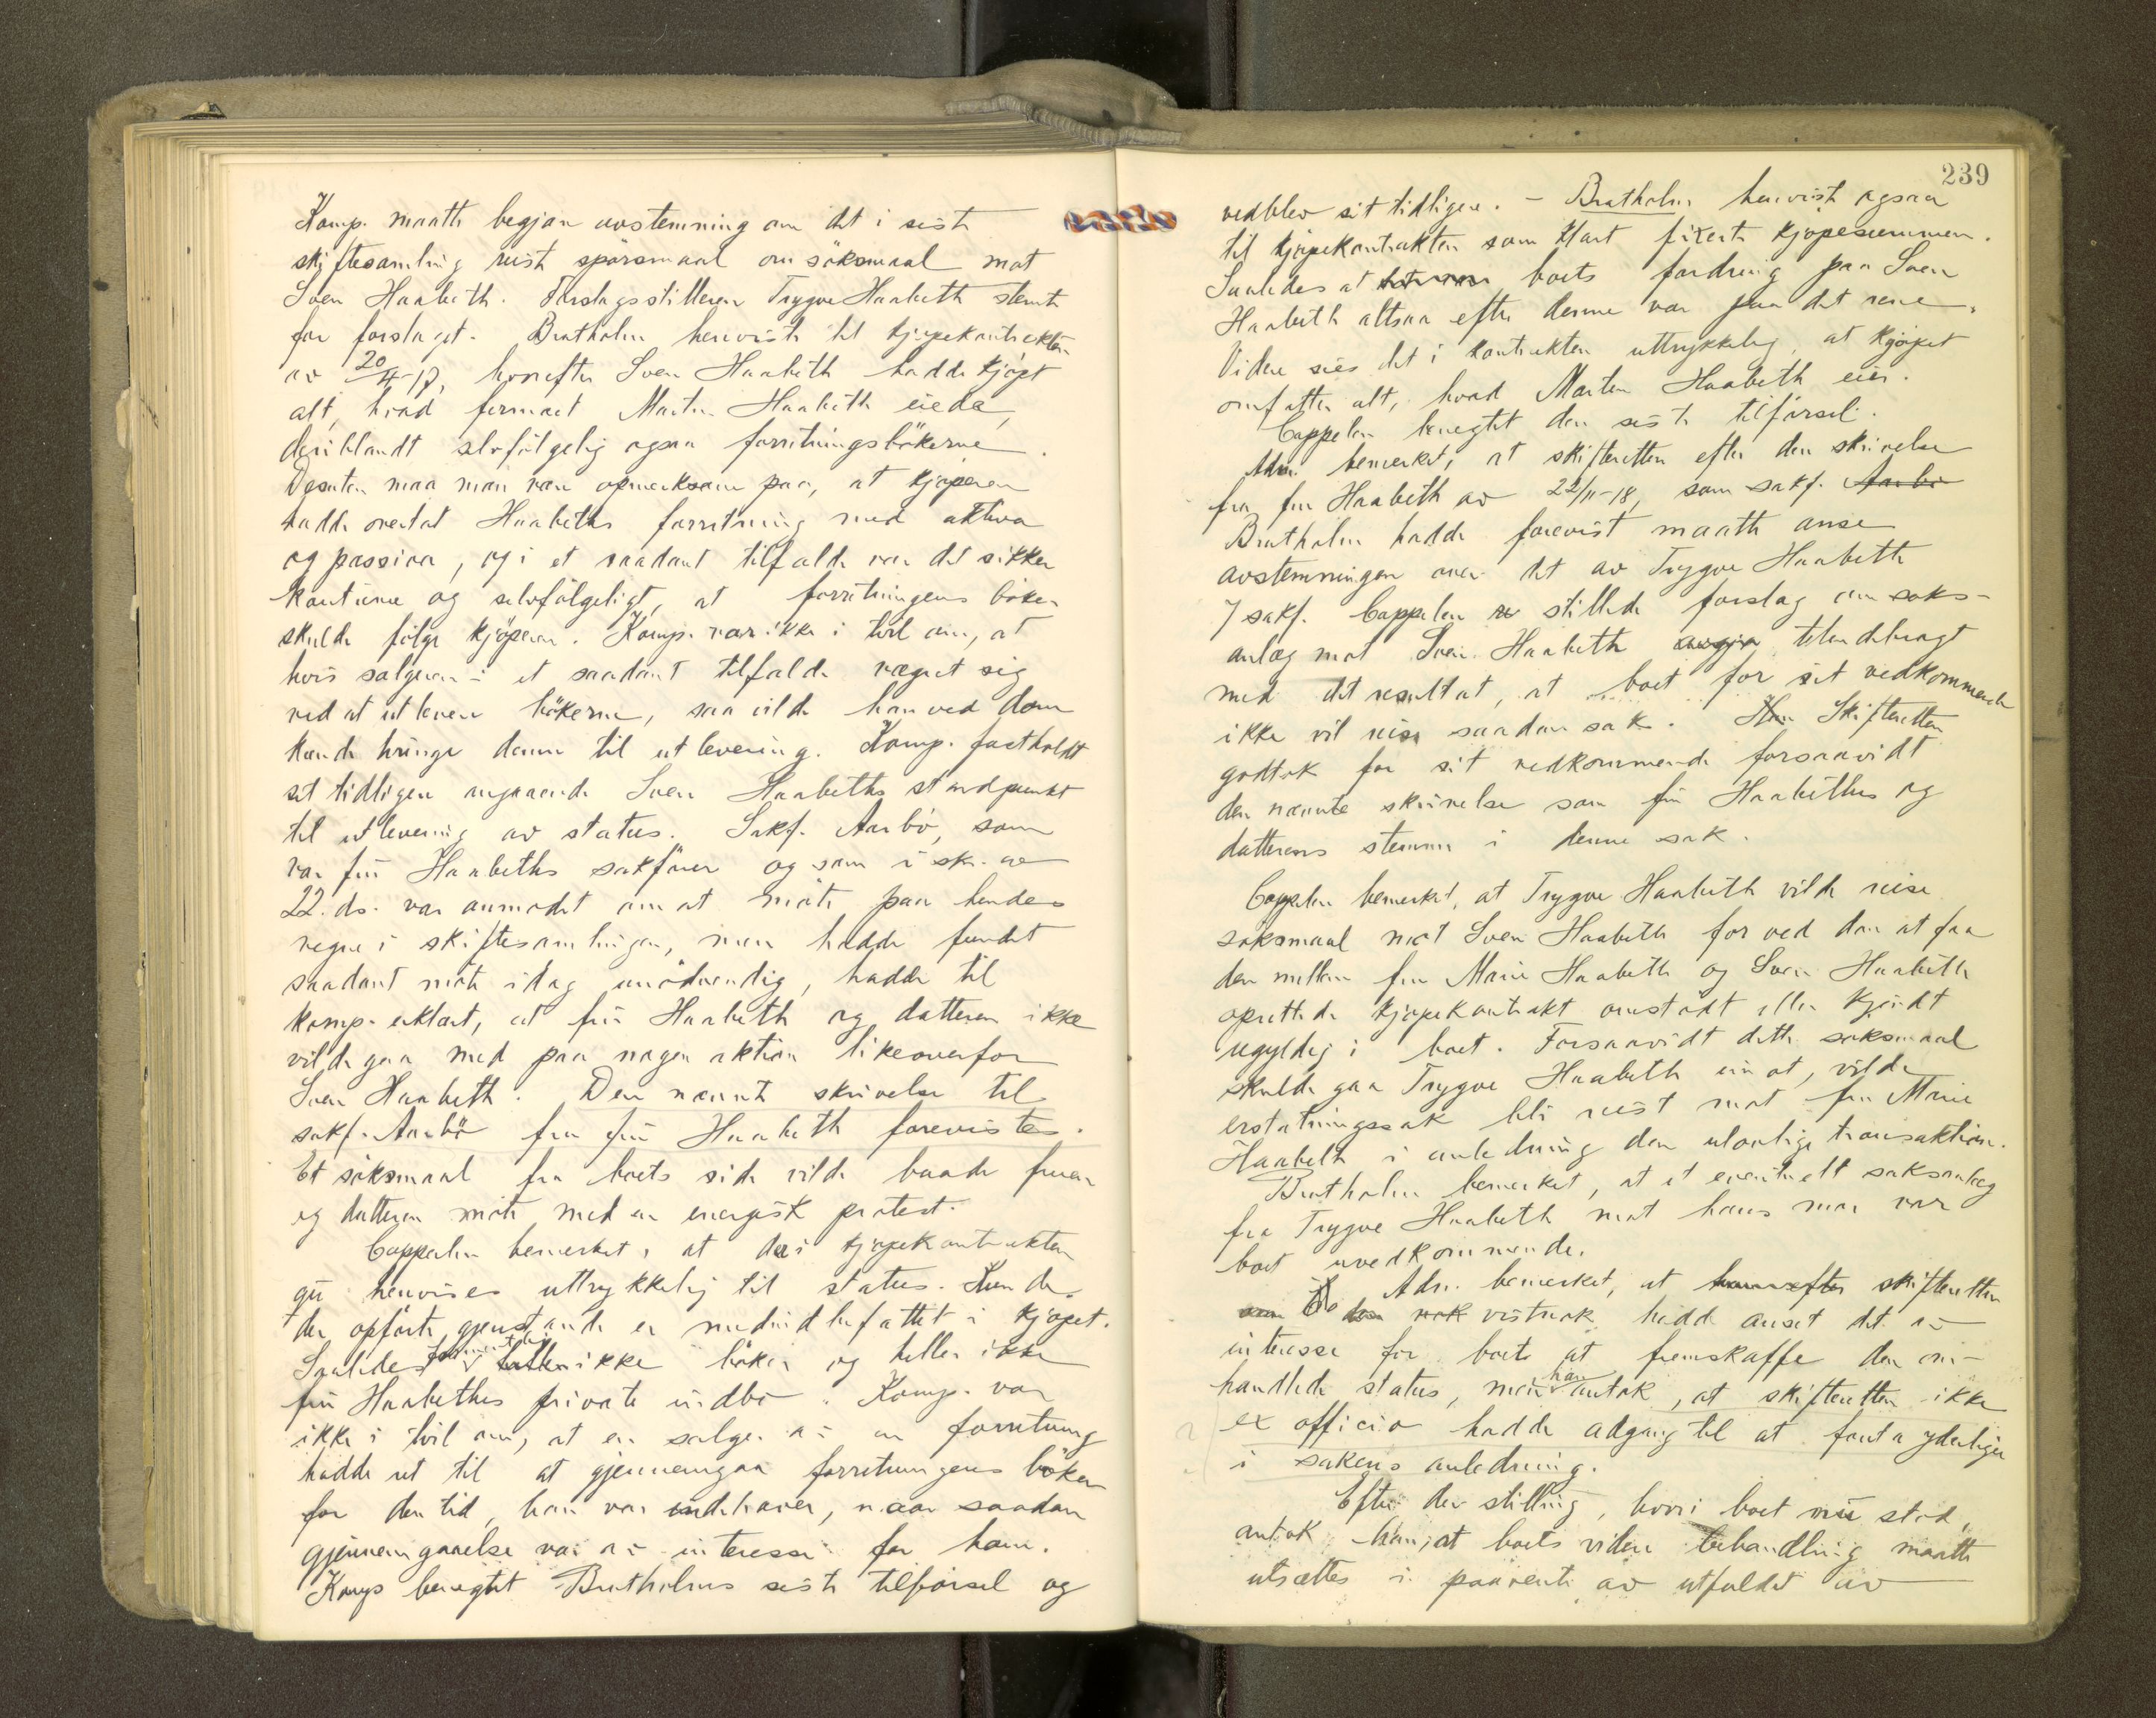 Komp. maatte begjære avstemning om det i siste
skiftesamling reiste spørsmaal om søksmaal mot
Sven Haabeth. Forslagsstilleren Trygve Haabeth stemte
for forslaget. Bratholm henviste til kjøpekontrakten
av 20/4-17, hvorefter Sven Haabeth hadde kjøpt
alt, hvad fermaet Marten Haabeth eiede,
deriblandt selvfølgelig ogsaa forretningsbøkerne.
Desuten maa man være opmerksom paa, at kjøperen
hadde overtat Haabeths forretning med aktiva
og passiva, og i et saadant tilfælde var det sikker
kutüme og selvfølgeligt, at forretningens bøker
skulde følge kjøperen. Komp. var ikke i tvil om, at
hvis sælgeren i et saadant tilfælde vægret sig
ved at utlevere bøkerne, saa vilde han ved dom
kunde tvinge denne til utlevering. Komp. fastholdt
sit tidligere angaaende Sven Haabeths standpunkt
til utlevering av status. Sakf. Aarbø, som
var frü Haabeths sakfører og som i skr. av
22. ds. var anmodet om at møte paa hendes
vegne i skiftesamlingen, men hadde fundet
saadant møte idag unødvendig, hadde til
komp. erklært, at frü Haabeth og datteren ikke
vilde gaa med paa nogen aktion likeoverfor
Sven Haabeth. Den nævnte skrivelse til
sakf. Aarbø fra frü Haabeth forevistes.
Et søksmaal fra boets side vilde baade fruen
og datteren møte med en energisk protest.
Cappelen bemerket, at der i kjøpekontrakten
gü henvises uttrykkelig til status. Kun de
der opførte gjenstande er medindbefattet i kjøpet.
Saaledes ikke bøker og heller ikke
frü Haabeths private indbo. Komp. var
ikke i tvil om, at en sælger av en forretning
hadde ret til at gjennemgaa forretningens bøker
for den tid, han var indehaver, naar saadan
gjennemgaaelse var av interesse for ham.
Komp benegtet Bratholms siste tilførsel og
239
vedblev sit tidligere. - Bratholm henviste ogsaa
til kjøpekontrakten som klart fixerte kjøpesummen.
Saaledes at boets fordring paa Sven
Haabeth altsaa efter denne var paa det rene.
Videre sies det i kontrakten uttrykkelig, at kjøpet
omfatter alt, hvad Marten Haabeth eier.
Cappelen benegtet den siste tilførsel.
Adm. bemerket, at skifteretten efter den skrivelse
fra fru Haabeth av 22/11-18, som sakf. Aarbø
Bratholm hadde forevist maatte anse
avstemningen over det av Trygve Haabeth
/ sakf. Cappelen stillede forslag om saks-
anlæg mot Sven Haabeth tilendebragt
med det resultat, at boet for sit vedkommende
ikke vil reise saadan sak. Skifteretten
godtok for sit vedkommende forsaavidt
den nævnte skrivelse som frü Haabeths og
datterens stemmer i denne sak.
Cappelen bemerket, at Trygve Haabeth vilde reise
søksmaal mot Sven Haabeth for ved dom at faa
den mellem fru Marie Haabeth og Sven Haabeth
oprettede kjøpekontrakt omstødt eller kjendt
ugyldig i boet. Forsaavidt dette søksmaal
skulde gaa Trygve Haabeth imot, vilde
erstatningssak bli reist mot fru Marie
Haabeth i anledning den ulovlige transaktion.
Bratholm bemerket, at et eventuelt saksanlæg
fra Trygve Haabeth mot hans mor var
boet uvedkommende.
Adm. bemerket, at skifteretten
vistnok hadde anset det av
interesse for boet at fremskaffe den om-
handlede status, men han antok, at skifteretten ikke
ex officio hadde adgang til at foreta yderligere
i sakens anledning.
Efter den stilling, hvori boet nü stod,
antok han, at boets videre behandling maatte
utsættes i paavente av utfaldet av